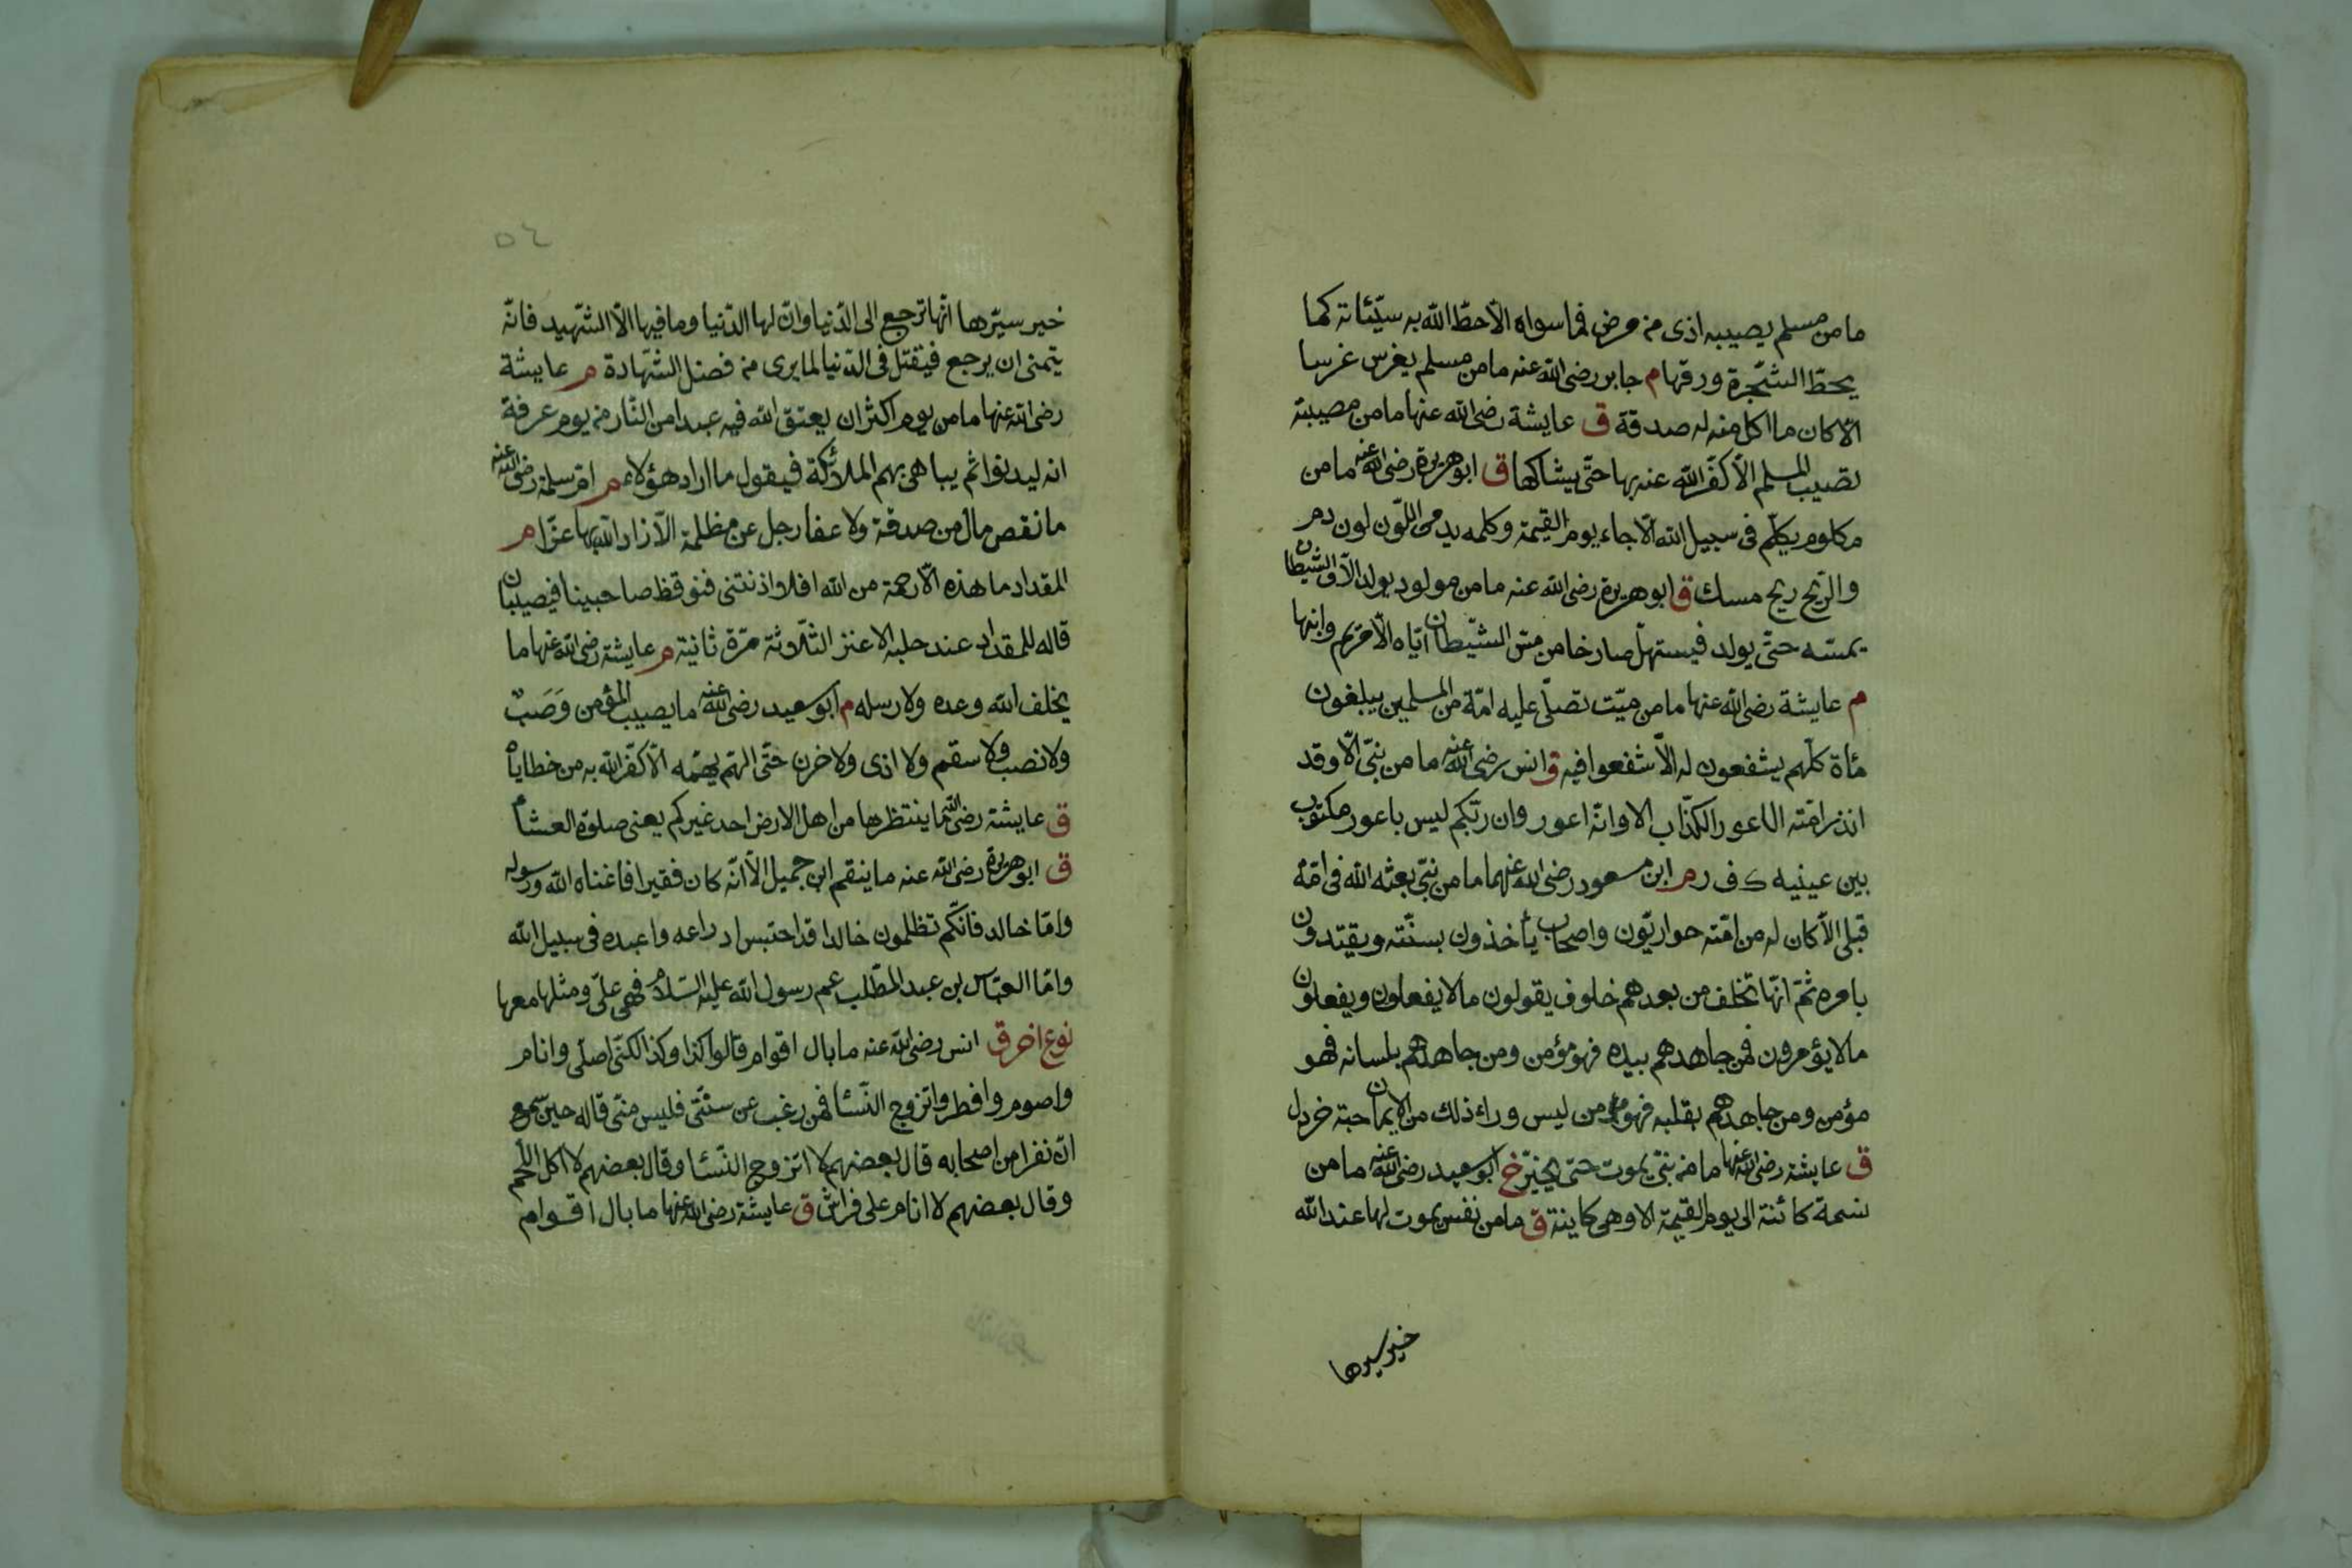 ما من مسلم يصيبه اذى من مرض فما سواه الّا حطّ الله به سيّئاته كما
يحطّ الشّجرة ورقها م جابر رضى الله عنه ما من مسلم يغرس غرسا
الّا كان ما اكل منه له صدقة ق عايشة رضى الله عنها ما من مصيبة
تصيب المسلم الّا كفّر الله عنه بها حتّى يشاكها ق ابو هريرة رضى الله عنه ما من
مكلوم يكلّم فى سبيل الله الّا جاء يوم القيمة وكلمه يدمى اللّون لون دم
والرّيح ريح مسك ق ابو هريرة رضى الله عنه ما من مولود يولد الّا والشّيطان
يمسّه حتّى يولد فيستهلّ صارخا من مسّ الشّيطان ايّاه الّا مريم وابنها
م عايشة رضى الله عنها ما من ميّت تصلّى عليه امّة من المسلمين يبلغون
مأة كلّهم يشفعون له الّا شفعوا فيه ق انس رضى الله عنه ما من نبىّ الّا وقد
انذر امّته الاعور الكذّاب الا وانّه اعور وان ربّكم ليس باعور مكتوب
بين عينيه ك ف ر م ابن مسعود رضى الله عنهما ما من نبىّ بعثه الله فى امّة
قبلى الّا كان له من امّته حواريّون واصحاب يأخذون بسنّته ويقتدون
بامره ثمّ انّها تخلف من بعدهم خلوف يقولون ما لا يفعلون ويفعلون
ما لا يؤمرون فمن جاهدهم بيده فهو مؤمن ومن جاهدهم بلسانه فهو
مؤمن ومن جاهدهم بقلبه فهو مؤمن ليس وراء ذلك من الايمان حبة خردل
ق عايشة رضى الله عنها ما من نبىّ يموت حتّى يخيّر خ ابو سعيد رضى الله عنه ما من
نسمة كائنة الى يوم القيمة الا وهى كاينة ق ما من نفس يموت لها عند الله
خير سيرها
٥٤
خير سيّرها انّها ترجع الى الدّنيا وانّ لها الدّنيا وما فيها الّا الشّهيد فانّه
يتمنى ان يرجع فيقتل فى الدّنيا لما يرى من فضل الشّهادة م عايشة
رضى الله عنها ما من يوم اكثر ان يعتق الله فيه عبدا من النّار من يوم عرفة
انه ليدنوا ثم يباهى بهم الملائكة فيقول ما اراد هؤلاء م امّ سلمة رضى الله عنه
ما نقص مال من صدقة ولا عفا رجل عن مظلمة الّا زاد الله بها عزّا م
المقداد ما هذه الّا رحمة من الله افلا اذنتنى فنوقظ صاحبينا فيصيبان
قاله للمقداد عند حلبه الاعنز الثّلاثة مرّة ثانية م عايشة رضى الله عنها ما
يخلف الله وعده ولا رسله م ابو سعيد رضى الله عنه ما يصيب المؤمن وَصَبٌ
ولا نصب ولا سقم ولا اذى ولا حزن حتّى الهمّ يهمّه الّا كفّر الله به من خطاياه
ق عايشة رضى الله ما ينتظرها من اهل الارض احد غيركم يعنى صلوة العشا
ق ابو هريرة رضى الله عنه ما ينقم ابن جميل الّا انّه كان فقيرا فاغناه الله ورسوله
وامّا خالد فانّكم تظلمون خالدا قد احتبس ادراعه واعبده فى سبيل الله
وامّا العبّاس بن عبد المطّلب عم رسول الله عليه السّلام فهى علىّ ومثلها معها
نوع اخر ق انس رضى الله عنه ما بال اقوام قالوا كذا وكذا لكنّى اصلّى وانام
واصوم وافطر واتزوج النّسا فمن رغب عن سنّتى فليس منّى قاله حين سمع
انّ نفرا من اصحابه قال بعضهم لا اتزوج النّسا وقال بعضهم لا اكل اللّحم
وقال بعضهم لا انام على فراش ق عايشة رضى الله عنها ما بال اقوام